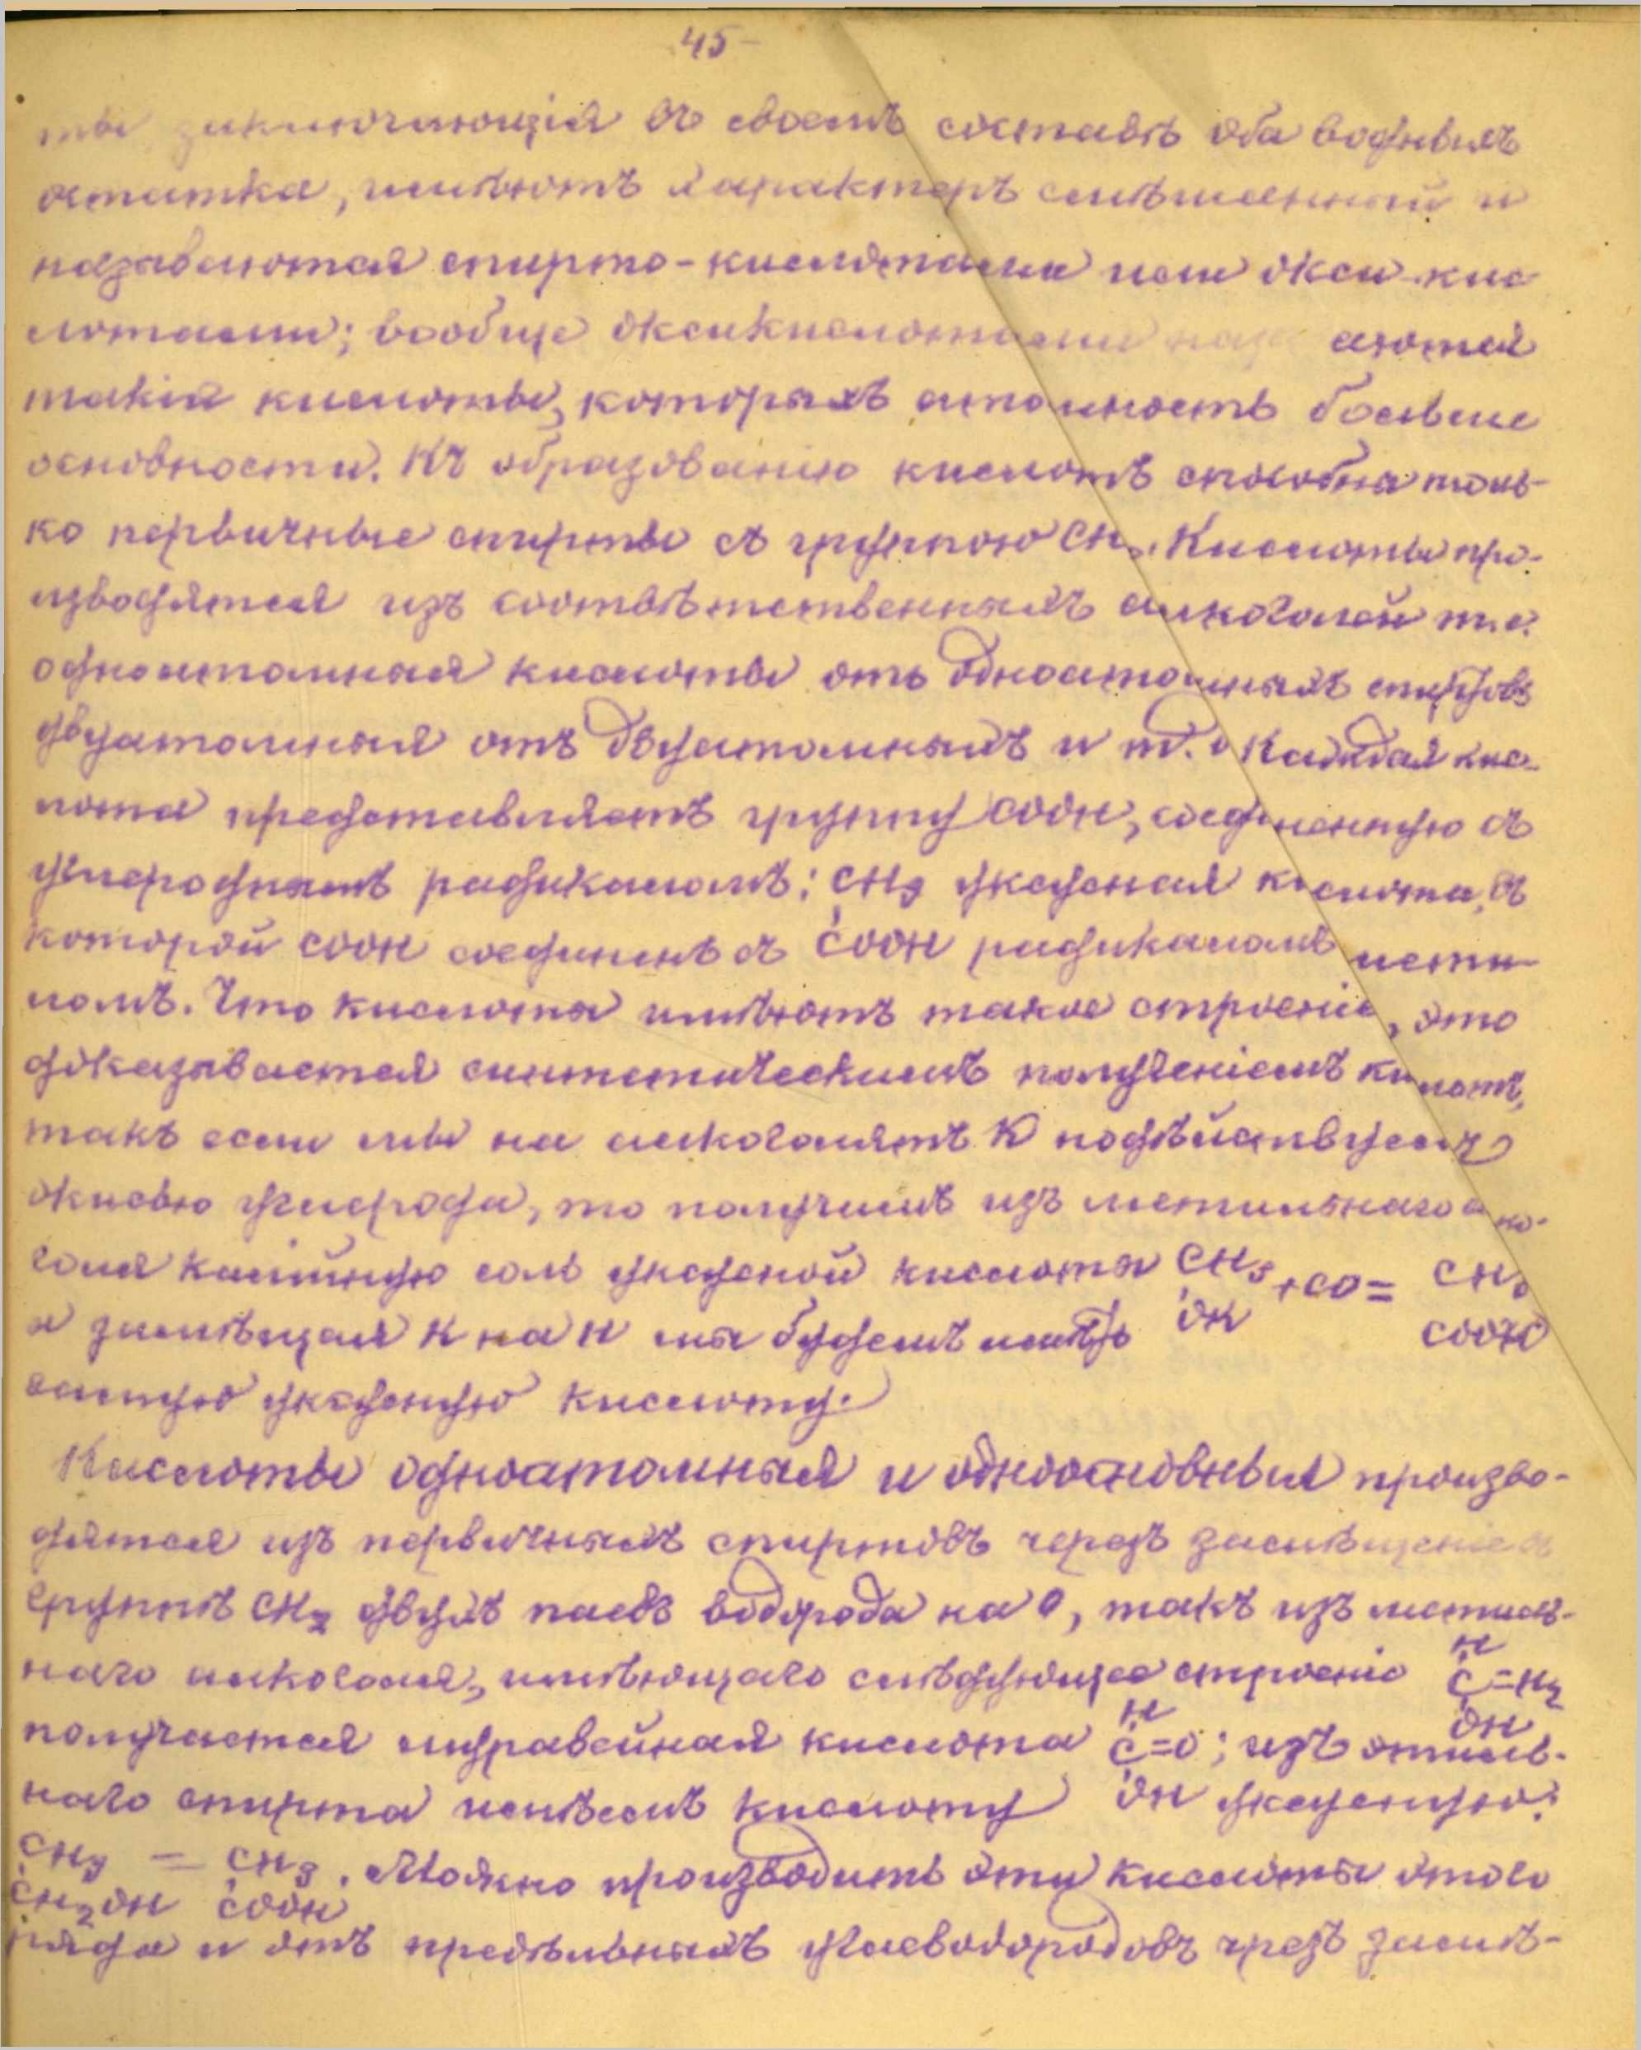 45-
ты заключающія въ своемъ составѣ оба водныхъ
остатка, имѣютъ характеръ смѣшанный и
называются спирто-кислотами или окси-кис
лотами; вообще оксикислотами наз аются
такія кислоты, которыхъ атомность больше
основности. Къ образованію кислотъ способны толь-
ко первичные спирты съ группою CH2. Кислоты про-
изводятся изъ соотвѣтственныхъ алкоголей т.е.
одноатомныя кислоты отъ одноатомныхъ спиртовъ
двуатомныя отъ двуатомныхъ и т. Каждая кис-
лота представляетъ группу COOH, соединенную съ
углероднымъ радикаломъ: CH3 уксусная кислота, въ
которой COOH соединенъ съ COOH радикаломъ мети-
ломъ. Что кислоты имѣютъ такое строеніе, это
доказывается синтетическимъ полученіемъ кислотъ,
такъ если мы на алкоголятъ K подѣйствуемъ
окисью углерода, то полученъ изъ метильнаго алко-
голя калійную соль уксусной кислоты CH3 +CO= CH3
а замѣщая K на H мы будемъ имѣть OK COOK
самую уксусную кислоту.
Кислоты одноатомныя и одноосновныя произво-
дятся изъ первичныхъ спиртовъ черезъ замѣщеніе въ
группѣ CH2 двухъ паевъ водорода на O, такъ изъ метиль-
наго алкоголя, имѣющаго слѣдующее строеніе H C=H2
получается муравейная кислота H C=O; изъ OH этиль-
наго спирта имѣемъ кислоту OH уксусную:
CH3 = CH3. Можно производить эти кислоты этого
CH2OH COOH
ряда и отъ предѣльныхъ углеводородовъ чрезъ замѣ-